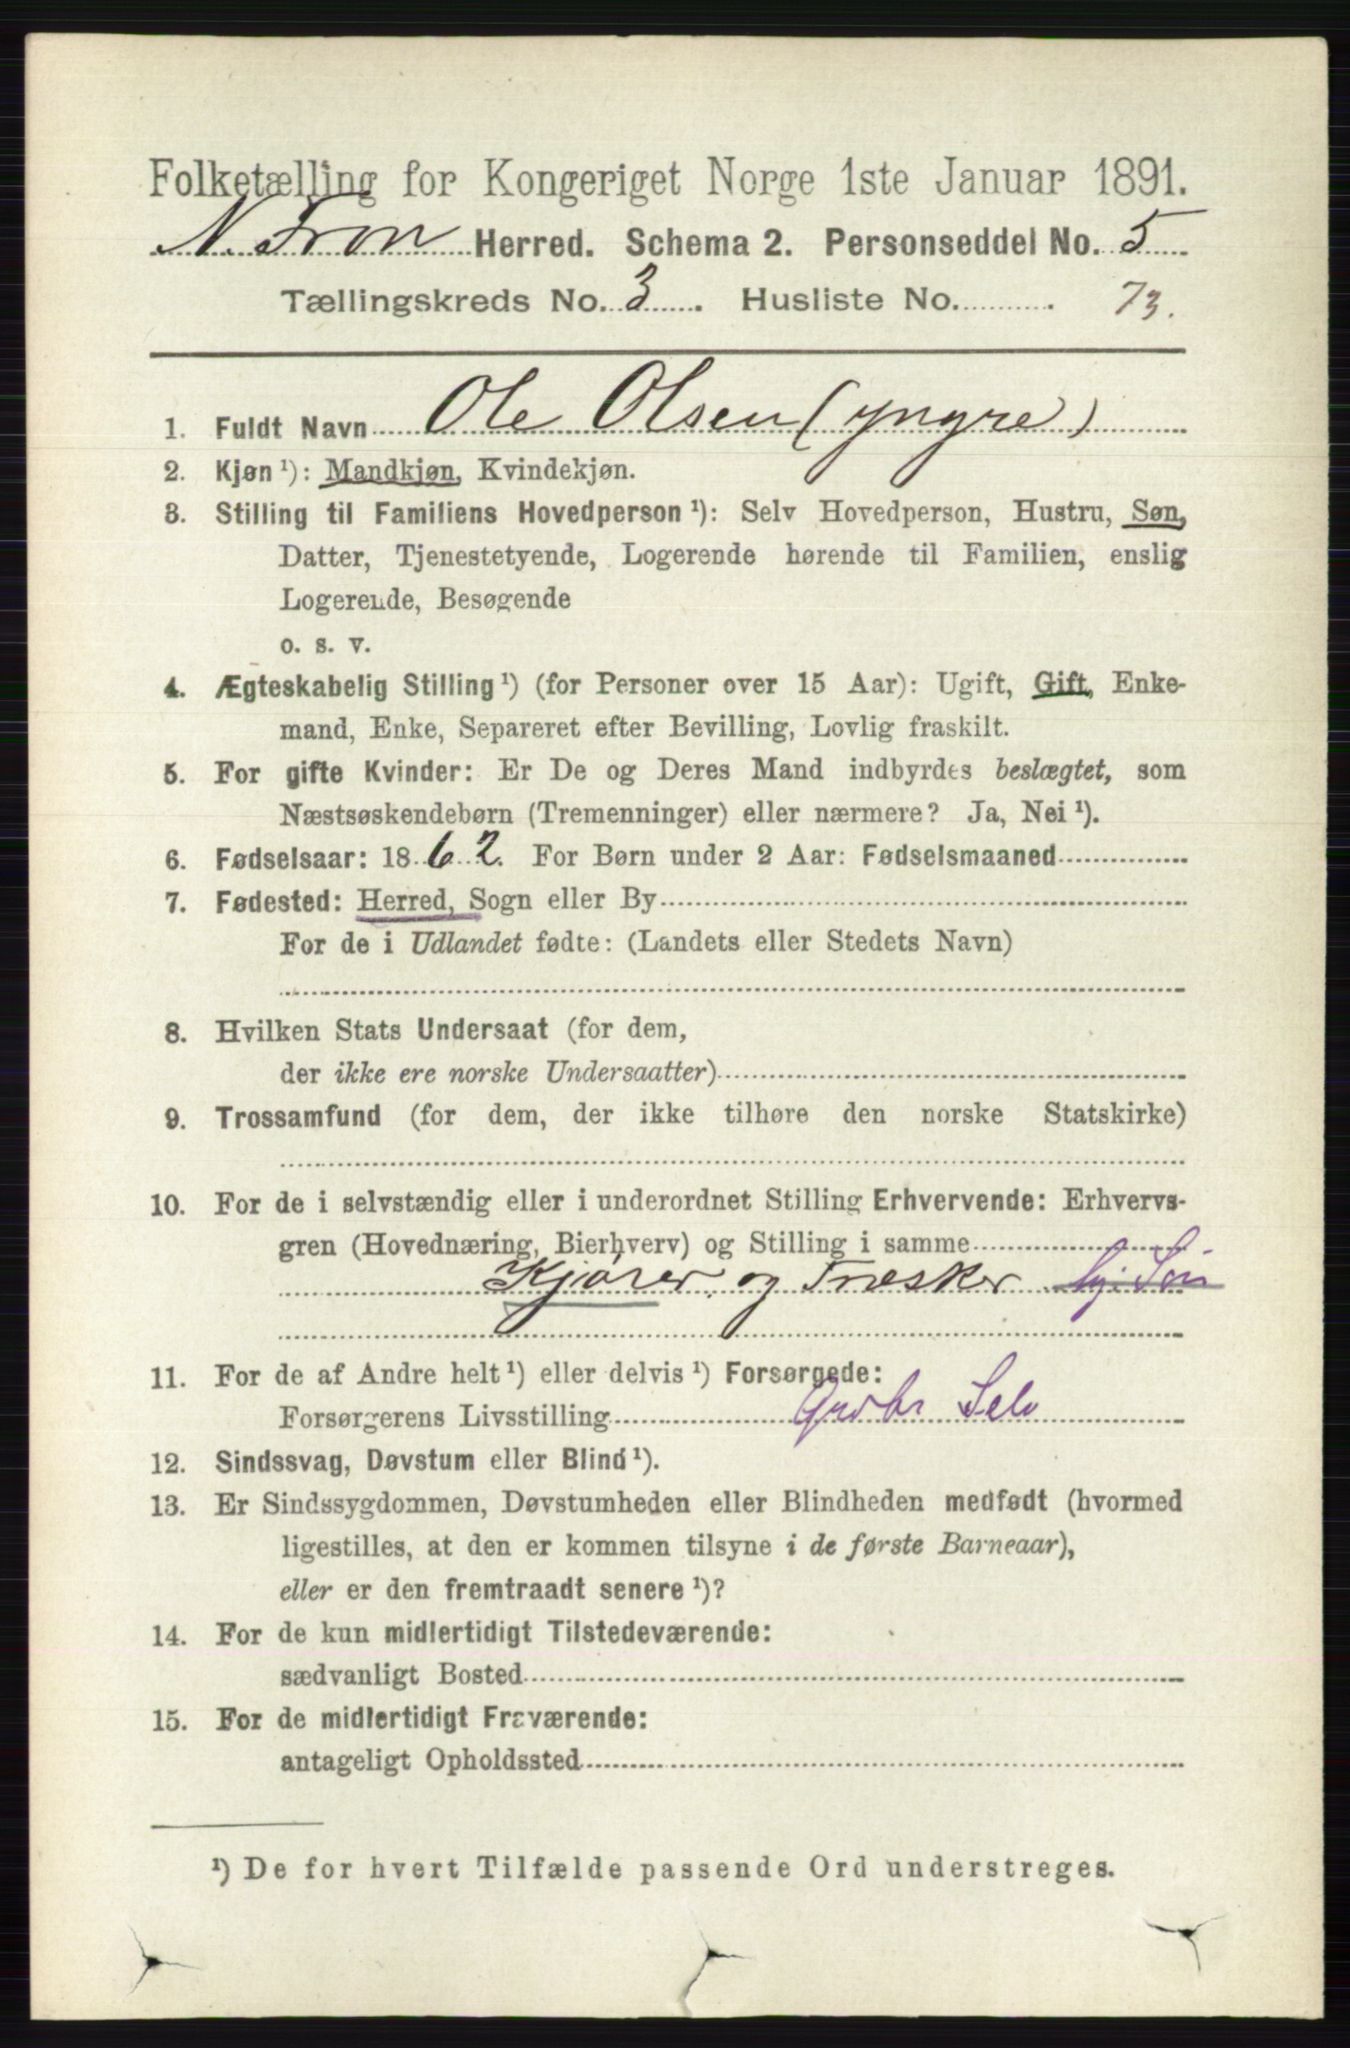 Folketælling for Kongeriget Norge 1ste Januar 1891.
N. Fron Herred. Schema 2. Personseddel No. 5
Tællingskreds No. 3. Husliste No. 73.
1. Fuldt Navn Ole Olsen (yngre)
2. Kjøn ¹): Mandkjøn, Kvindekjøn.
3. Stilling til Familiens Hovedperson ¹): Selv Hovedperson, Hustru, Søn,
Datter, Tjenestetyende, Logerende hørende til Familien, enslig
Logerende, Besøgende
o. s. v.
4. Ægteskabelig Stilling ¹) (for Personer over 15 Aar): Ugift, Gift, Enke-
mand, Enke, Separeret efter Bevilling, Lovlig fraskilt.
5. For gifte Kvinder: Er De og Deres Mand indbyrdes beslægtet, som
Næstsøskendebørn (Tremenninger) eller nærmere? Ja, Nei ¹).
6. Fødselsaar: 1862. For Børn under 2 Aar: Fødselsmaaned
7. Fødested: Herred, Sogn eller By
For de i Udlandet fødte: (Landets eller Stedets Navn)
8. Hvilken Stats Undersaat (for dem,
der ikke ere norske Undersaatter)
9. Trossamfund (for dem, der ikke tilhøre den norske Statskirke)
10. For de i selvstændig eller i underordnet Stilling Erhvervende: Erhvervs-
gren (Hovednæring, Bierhverv) og Stilling i samme
Kjører og Træsker Søn
11. For de af Andre helt ¹) eller delvis ¹) Forsørgede:
Forsørgerens Livsstilling Grdbr Selv
12. Sindssvag, Døvstum eller Blind ¹).
13. Er Sindssygdommen, Døvstumheden eller Blindheden medfødt (hvormed
ligestilles, at den er kommen tilsyne i de første Barneaar),
eller er den fremtraadt senere ¹)?
14. For de kun midlertidigt Tilstedeværende:
sædvanligt Bosted
15. For de midlertidigt Fraværende:
antageligt Opholdssted
¹) De for hvert Tilfælde passende Ord understreges.